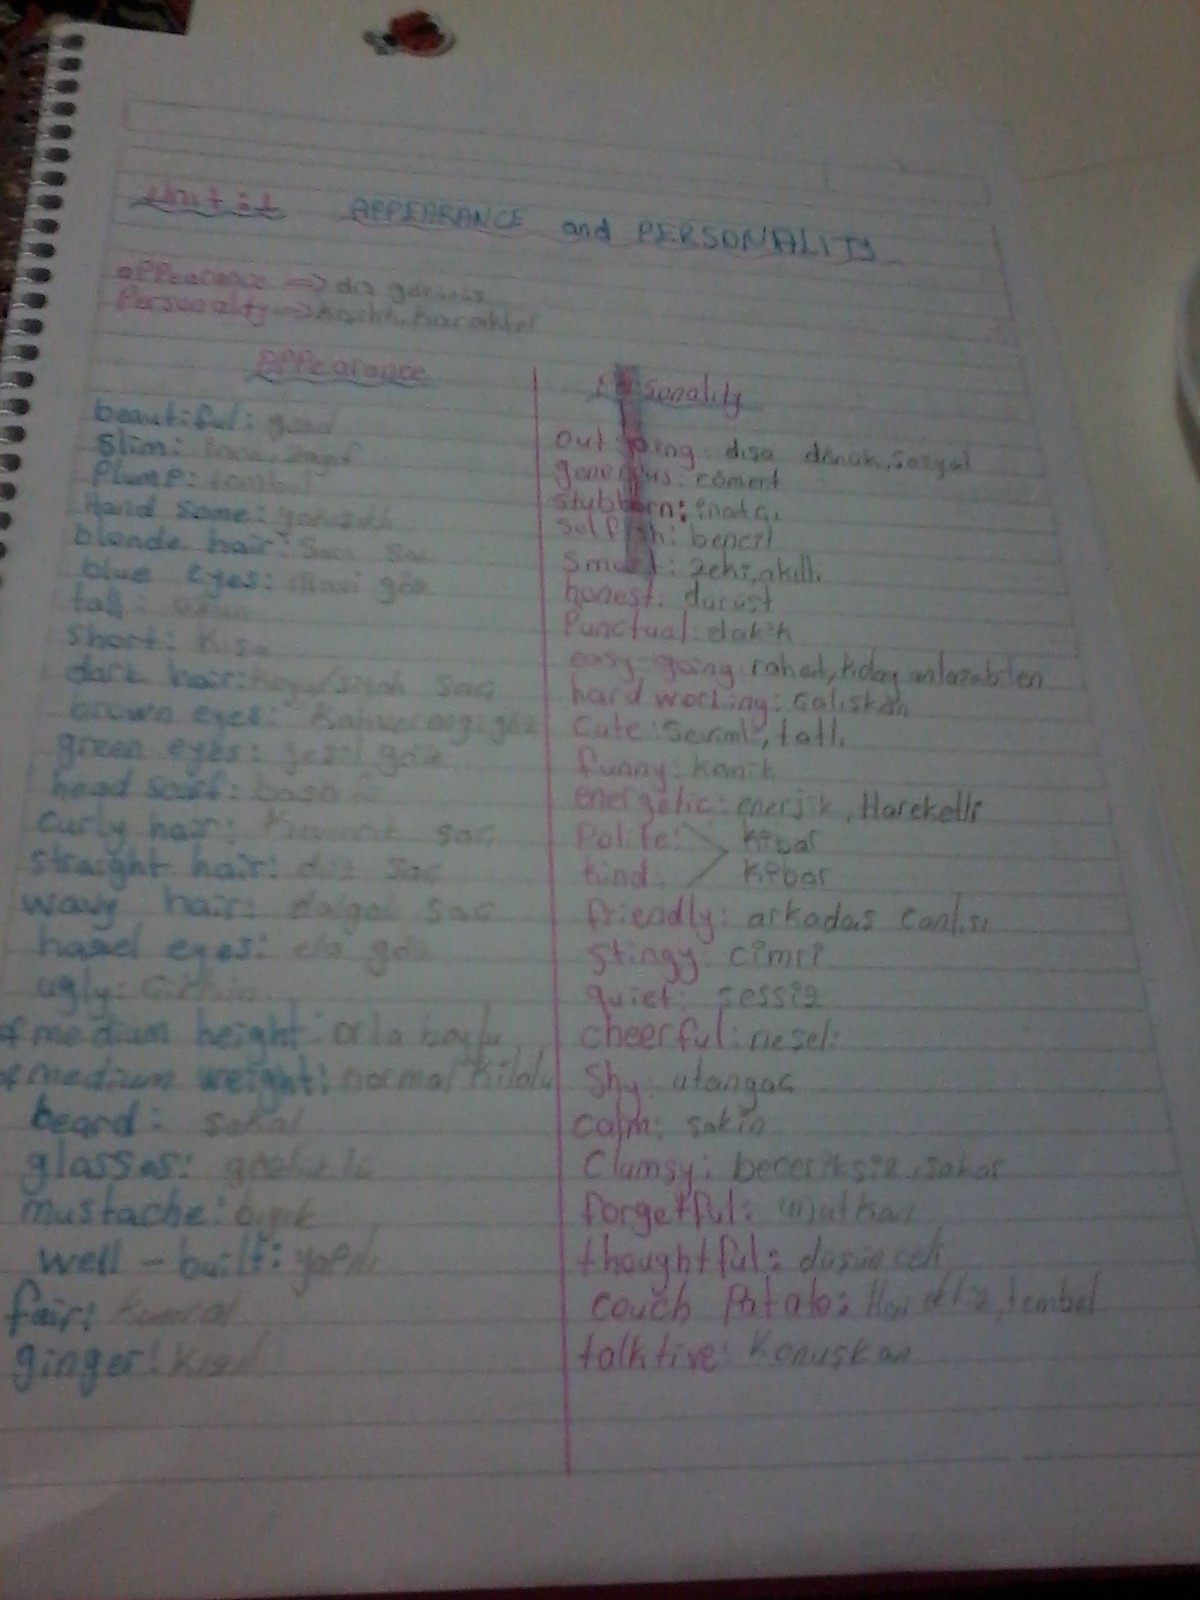 Unit:1 APPEARANCE and PERSONALITY
appearance => dış görünüş
Personality => kişilik, karakter
Appearance
beautiful: güzel
slim: ince, zayıf
Plump: tombul
Hand some: yakışıklı
blonde hair: Sarı saç
blue eyes: Mavi göz
tall: uzun
short: Kısa
dark hair: koyu/siyah saç
brown eyes: Kahverengi göz
green eyes: yeşil göz
head scarf:
curly hair: Kıvırcık saç
straight hair: düz saç
wavy hair: dalgalı saç
hazel eyes: ela göz
ugly: Çirkin
of medium height: orta boylu
of medium weight: normal kilolu
beard: sakal
glasses: gözlüklü
mustache: bıyık
well - built: yapılı
fair: Kumral
ginger: Kızıl
Personality
out going: dışa dönük, sosyal
generous: cömert
stubborn: inatçı
selfish: bencil
Smart: zeki, akıllı
honest: dürüst
Punctual: dakik
easy-going: rahat, kolay anlaşabilen
hard working: çalışkan
Cute: Sevimli, tatlı
funny: komik
energetic: enerjik, Hareketli
Polite: kibar
kind: kibar
friendly: arkadaş canlısı
Stingy: cimri
quiet: sessiz
cheerful: neşeli
Shy: utangaç
calm: sakin
Clumsy: beceriksiz, sakar
forgetful: unutkan
thoughtful: düşünceli
couch Potato: Hareketsiz, tembel
talktive: Konuşkan